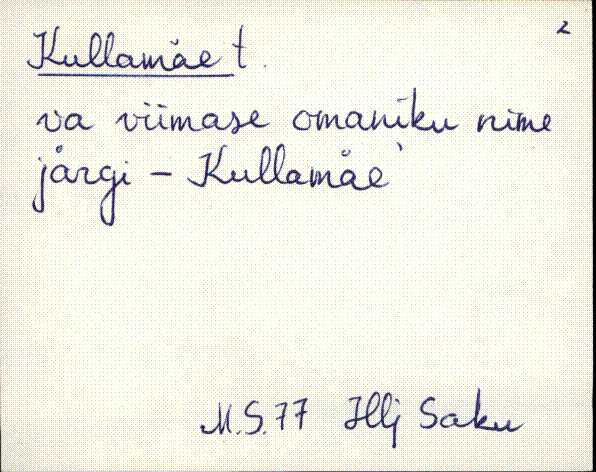 2
Kullamäe t.
va viimase omaniku nime
järgi - Kullamäe`
M.S.77 Jllj Saku